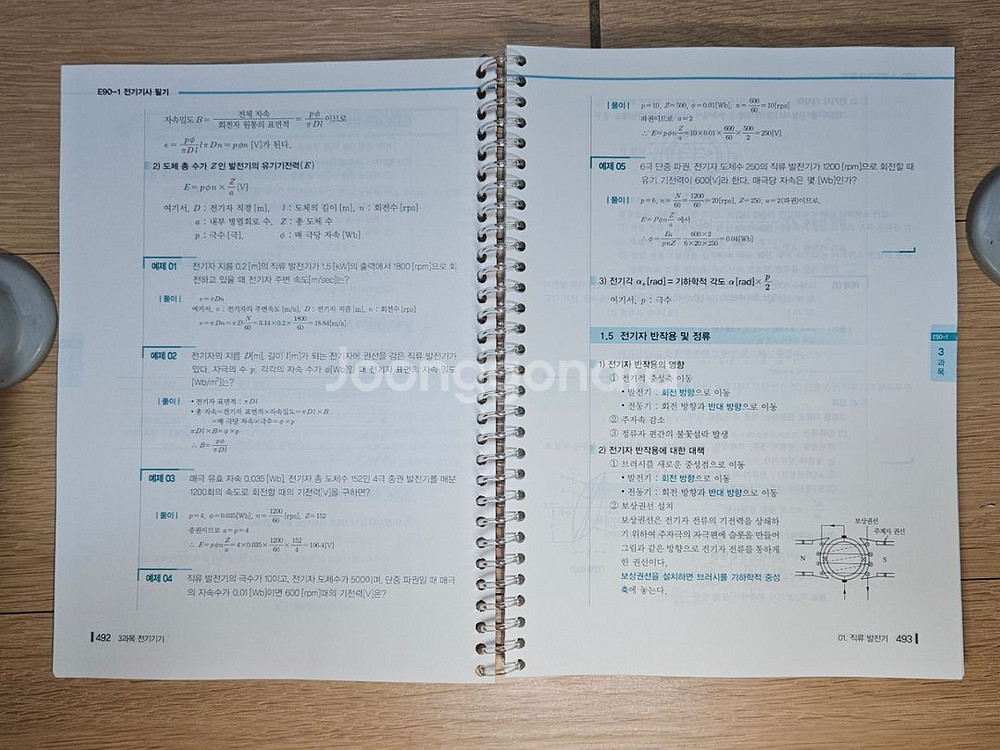 E90-1 전기기사 필기
자속밀도 B = 전체 자속 / 회전자 원통의 표면적 = pφ / πDl 이므로
e = pφ/πDl · lπDn = pφn [V]가 된다.
2) 도체 총 수가 Z인 발전기의 유기기전력(E)
E = pφn × Z/a [V]
여기서, D : 전기자 직경 [m], l : 도체의 길이 [m], n : 회전수 [rps]
a : 내부 병렬회로 수, Z : 총 도체 수
p : 극수 [극], φ : 매 극당 자속 [Wb]
예제 01 전기자 지름 0.2 [m]의 직류 발전기가 1.5 [kW]의 출력에서 1800 [rpm]으로 회
전하고 있을 때 전기자 주변 속도[m/sec]는?
|풀이| v = πDn
여기서, v : 전기자의 주변속도 [m/s], D : 전기자 지름 [m], n : 회전수 [rps]
v = πDn = πD N/60 = 3.14×0.2× 1800/60 = 18.84[m/s]
예제 02 전기자의 지름 D[m], 길이 l[m]가 되는 전기자에 권선을 감은 직류 발전기가
있다. 자극의 수 p, 각각의 자속 수가 φ[Wb]일 때 전기자 표면의 자속 밀도
[Wb/m²]는?
|풀이| • 전기자 표면적 : πDl
• 총 자속=전기자 표면적×자속밀도=πDl×B
=매 극당 자속×극수=φ×p
πDl×B=φ×p
∴ B = pφ/πDl
예제 03 매극 유효 자속 0.035 [Wb], 전기자 총 도체수 152인 4극 중권 발전기를 매분
1200회의 속도로 회전할 때의 기전력[V]을 구하면?
|풀이| p=4, φ=0.035[Wb], n= 1200/60 [rps], Z=152
중권이므로 a=p=4
∴ E=pφn Z/a = 4×0.035× 1200/60 × 152/4 = 106.4[V]
예제 04 직류 발전기의 극수가 10이고, 전기자 도체수가 500이며, 단중 파권일 때 매극
의 자속수가 0.01 [Wb]이면 600 [rpm]때의 기전력[V]은?
492 3과목 전기기기
|풀이| p=10, Z=500, φ=0.01[Wb], n= 600/60 =10[rps]
파권이므로 a=2
∴ E=pφn Z/a =10×0.01× 600/60 × 500/2 =250[V]
예제 05 6극 단중 파권, 전기자 도체수 250의 직류 발전기가 1200 [rpm]으로 회전할 때
유기 기전력이 600[V]라 한다. 매극당 자속은 몇 [Wb]인가?
|풀이| p=6, n= N/60 = 1200/60 =20[rps], Z=250, a=2(파권)이므로,
E=Pφn Z/a 에서
∴ φ= Ea/pnZ = 600×2 / 6×20×250 =0.04[Wb]
3) 전기각 αe [rad] = 기하학적 각도 α [rad]× p/2
여기서, p : 극수
1.5 전기자 반작용 및 정류
1) 전기자 반작용의 영향
① 전기적 중성축 이동
• 발전기 : 회전 방향으로 이동
• 전동기 : 회전 방향과 반대 방향으로 이동
② 주자속 감소
③ 정류자 편간의 불꽃섬락 발생
2) 전기자 반작용에 대한 대책
① 브러시를 새로운 중성점으로 이동
• 발전기 : 회전 방향으로 이동
• 전동기 : 회전 방향과 반대 방향으로 이동
② 보상권선 설치
보상권선은 전기자 전류의 기전력을 상쇄하
기 위하여 주자극의 자극편에 슬롯을 만들어
그림과 같은 방향으로 전기자 전류를 통하게
한 권선이다.
보상권선을 설치하면 브러시를 기하학적 중성
축에 놓는다.
보상권선
주계자 권선
N
S
E90-1
3
과
목
01. 직류 발전기 493
Joonggona